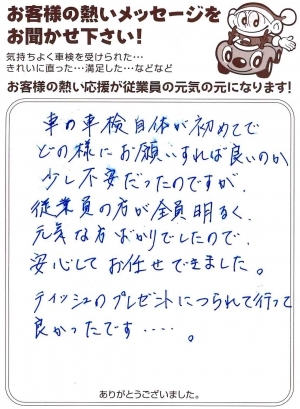 お客様の熱いメッセージを
お聞かせ下さい!
気持ちよく車検を受けられた…
きれいに直った…満足した…などなど
お客様の熱い応援が従業員の元気の元になります!
車の車検自体が初めてで
どの様にお願いすれば良いのか
少し不安だったのですが、
従業員の方が全員明るく、
元気な方ばかりでしたので、
安心してお任せできました。
ティッシュのプレゼントにつられて行って
良かったです……。
ありがとうございました。